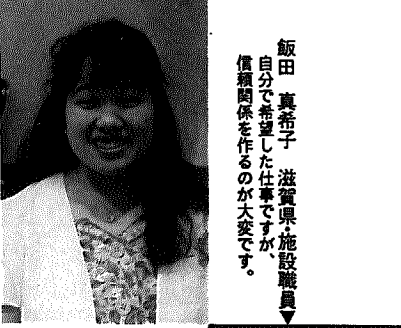 飯田 真希子 滋賀県・施設職員▼
自分で希望した仕事ですが、
信頼関係を作るのが大変です。